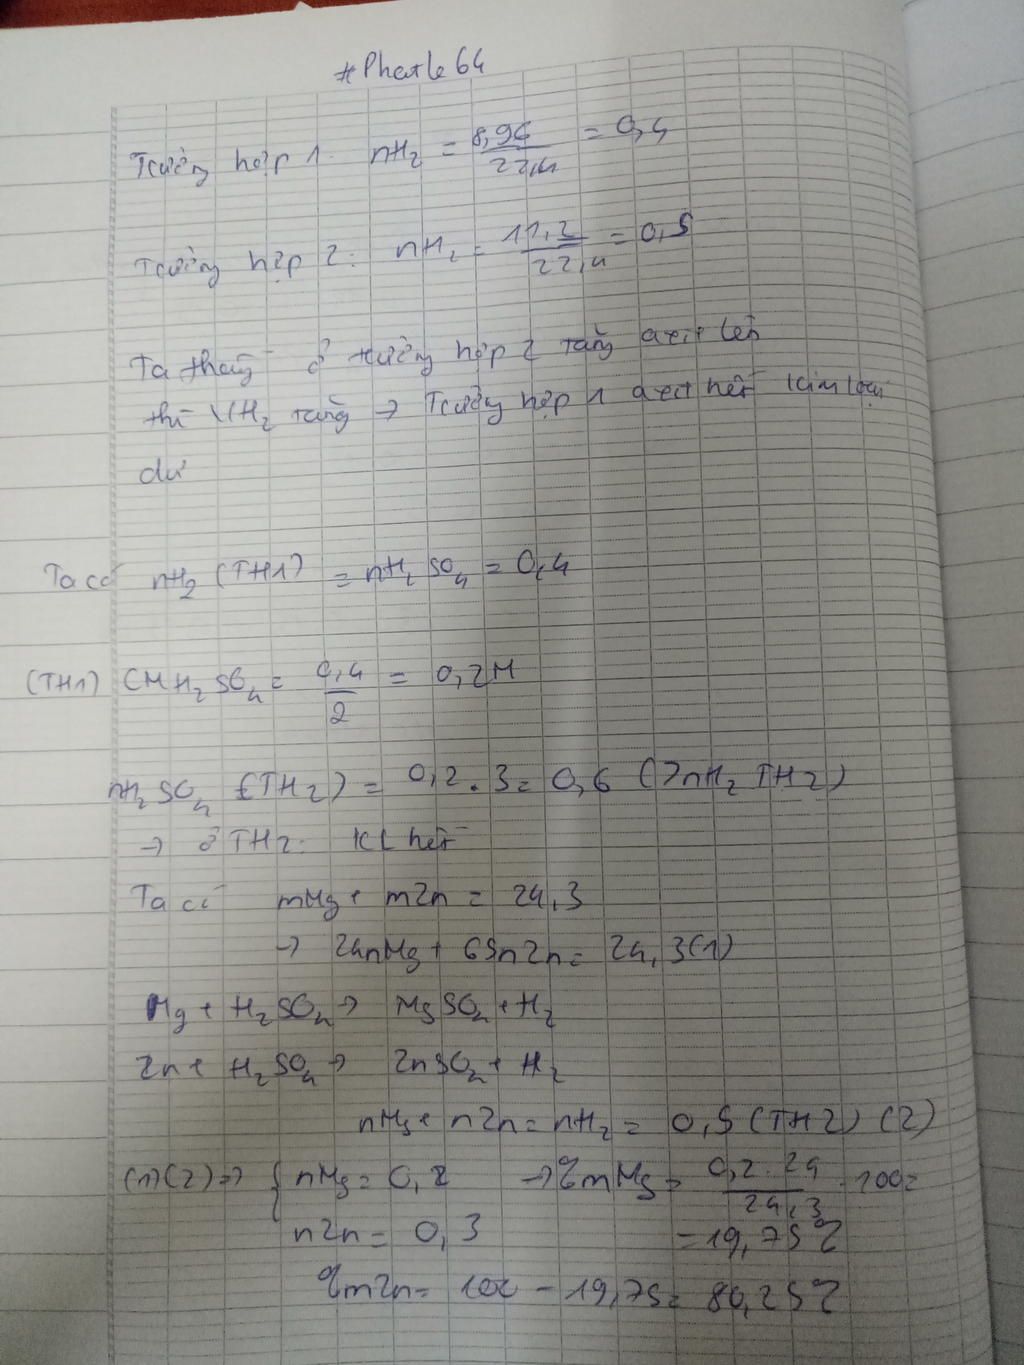 #Phatle64
Trường hợp 1. nH₂ = 8,96/22,4 = 0,4
Trường hợp 2: nH₂ = 11,2/22,4 = 0,5
Ta thấy ở trường hợp 2 tăng axit lên
thì VH₂ tăng → Trường hợp 1 axit hết kim loại
dư
Ta có nH₂ (TH1) = nH₂SO₄ = 0,4
(TH1) CM H₂SO₄ = 0,4/2 = 0,2M
nH₂SO₄ (TH2) = 0,2 . 3 = 0,6 (>nH₂ TH2)
→ ở TH2: KL hết
Ta có mMg + mZn = 24,3
→ 24nMg + 65nZn = 24,3(1)
Mg + H₂SO₄ → MgSO₄ + H₂
Zn + H₂SO₄ → ZnSO₄ + H₂
nMg + nZn = nH₂ = 0,5 (TH2) (2)
(1)(2) → { nMg = 0,2 → %mMg = 0,2 . 24/24,3 . 100 =
nZn = 0,3 = 19,75%
%mZn = 100 - 19,75 = 80,25%